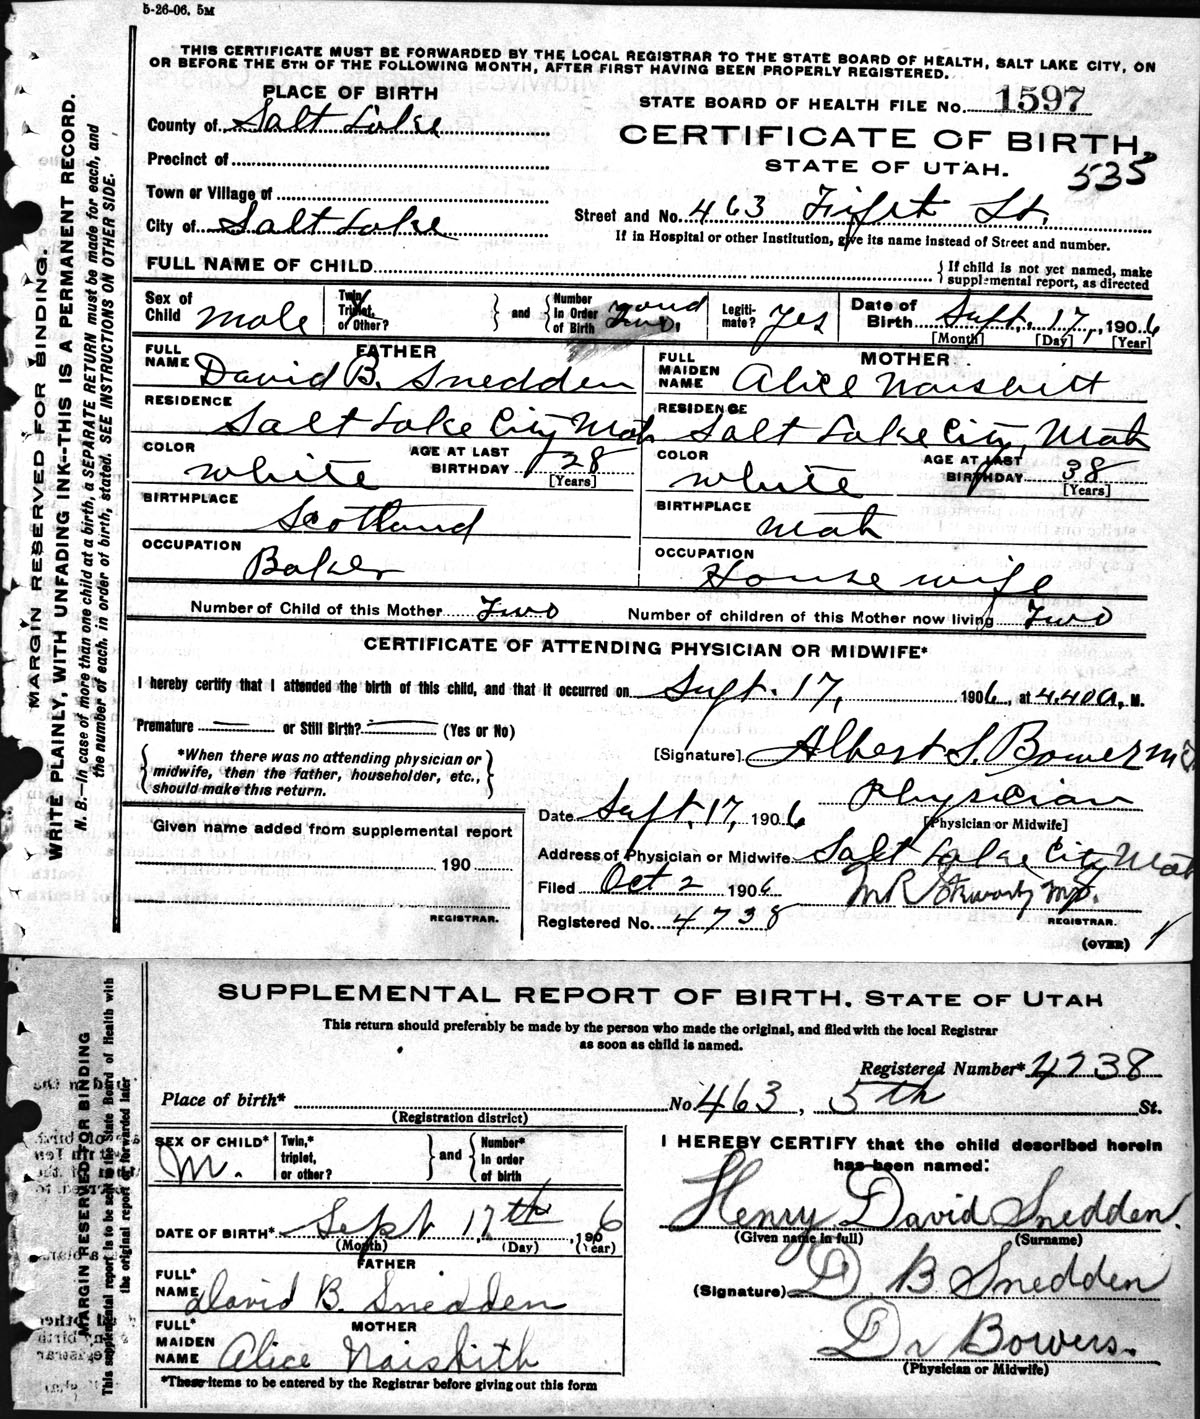 5-26-06. 5M
THIS CERTIFICATE MUST BE FORWARDED BY THE LOCAL REGISTRAR TO THE STATE BOARD OF HEALTH, SALT LAKE CITY, ON
OR BEFORE THE 5TH OF THE FOLLOWING MONTH, AFTER FIRST HAVING BEEN PROPERLY REGISTERED.
MARGIN RESERVED FOR BINDING.
WRITE PLAINLY, WITH UNFADING INK--THIS IS A PERMANENT RECORD.
N. B.—In case of more than one child at a birth, a SEPARATE RETURN must be made for each, and
the number of each, in order of birth, stated. SEE INSTRUCTIONS ON OTHER SIDE.
PLACE OF BIRTH
County of Salt Lake
Precinct of
Town or Village of
City of Salt Lake
STATE BOARD OF HEALTH FILE No. 1597
CERTIFICATE OF BIRTH,
STATE OF UTAH.
535
Street and No. 463 Fifth St.
If in Hospital or other Institution, give its name instead of Street and number.
FULL NAME OF CHILD
{ If child is not yet named, make
supplemental report, as directed
Sex of Child Male
Twin, Triplet, or Other? } and { Number In Order of Birth Two,
Legitimate? Yes
Date of Birth Sept. 17, 1906
[Month] [Day] [Year]
FATHER
FULL NAME David B. Snedden
RESIDENCE Salt Lake City Utah
COLOR White
AGE AT LAST BIRTHDAY 28
[Years]
BIRTHPLACE Scotland
OCCUPATION Baker
MOTHER
FULL MAIDEN NAME Alice Naisbitt
RESIDENCE Salt Lake City, Utah
COLOR White
AGE AT LAST BIRTHDAY 38
[Years]
BIRTHPLACE Utah
OCCUPATION House wife
Number of Child of this Mother Two Number of children of this Mother now living Two
CERTIFICATE OF ATTENDING PHYSICIAN OR MIDWIFE*
I hereby certify that I attended the birth of this child, and that it occurred on Sept. 17, 1906, at 4.40 A, M.
Premature or Still Birth? (Yes or No)
{ *When there was no attending physician or
midwife, then the father, householder, etc.,
should make this return. }
[Signature] Albert S. Bower MD
Physician
[Physician or Midwife]
Date Sept. 17, 1906
Given name added from supplemental report
190
REGISTRAR.
Address of Physician or Midwife Salt Lake City Utah
Filed Oct 2 1906
REGISTRAR.
Registered No. 4738
(OVER)
SUPPLEMENTAL REPORT OF BIRTH. STATE OF UTAH
This return should preferably be made by the person who made the original, and filed with the local Registrar
as soon as child is named.
MARGIN RESERVED FOR BINDING
This supplemental report is to be sent to the State Board of Health with
the original report or forwarded later
Registered Number* 4738
Place of birth* No 463, 5th St.
(Registration district)
SEX OF CHILD* M.
Twin,* triplet, or other? } and { Number* In order of birth
DATE OF BIRTH* Sept 17th, 1906
(Month) (Day) (Year)
FATHER
FULL* NAME David B. Snedden
MOTHER
FULL* MAIDEN NAME Alice Naisbith
*These items to be entered by the Registrar before giving out this form
I HEREBY CERTIFY that the child described herein
has been named:
Henry David Snedden.
(Given name in full) (Surname)
(Signature) D B Snedden
Dr Bowers.
(Physician or Midwife)